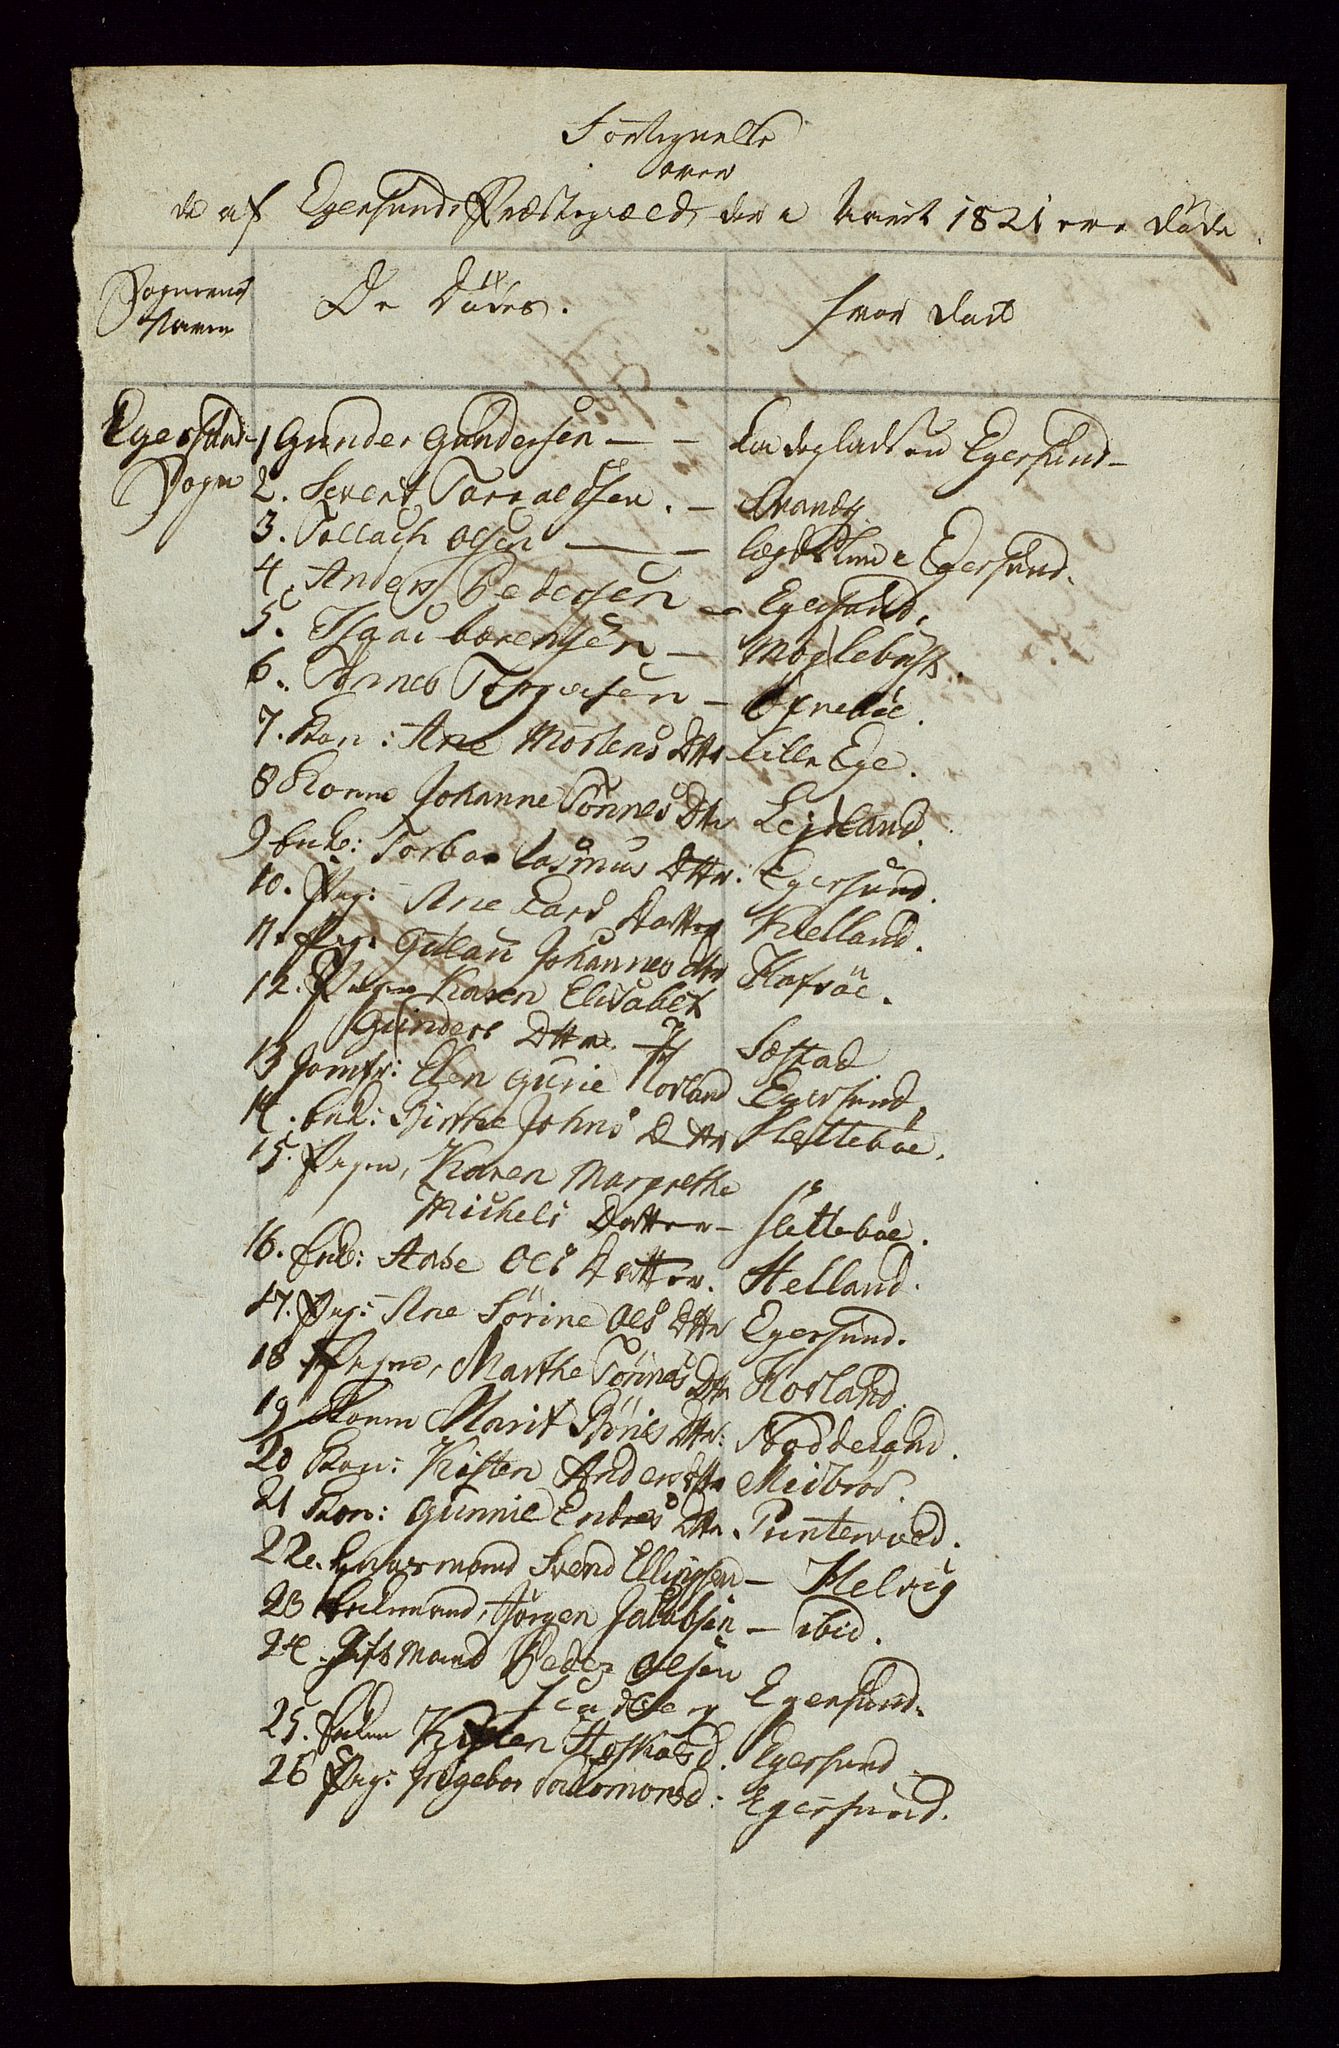 Fortegnelse
over
de af Egersunds Præstegæld, der i Aaret 1821 ere døde
Sognenes Navn
De Dödes.
hvor död
Egersunds Sogn
1 Gunder Gundersen — — Ladepladsen Egersund —
2. Severt Torvaldsen. — Svandø
3. Tollach Olsen — — Egersund.
4. Anders Pedersen — Egersund.
5. Isaac Lorensen — Møglebust.
6. Tørres Torgersen —
7. Kon: Ane Mortens Dttr Lille Ege.
8 Konen Johanne Tönnes Dttr Lejeland.
9 Enk: Torbor Rasmus Dttr. Egersund.
10. Pig: Ane Lars Datter Kielland.
11. Pig: Gulau Johannes dtr Hafsöe.
12. Pigen Karen Elisabet
Gunders Dttr. — Sæstad
13 Jomfr: Elen Gurie Horland Egersund,
14. Enk: Birthe Johns Dttr Slettebøe.
15. Pigen, Karen Margrethe
Michels Datter — Slettebøe.
16. Enk: Aase Ols Datter. Helland.
17. Pig: Ane Sörine Ols Dttr Egersund.
18. Pigen, Marthe Tönnes Dttr Horland.
19 Konen Marit Böries Dttr: Skaddeland.
20 Kon: Kisten Anders Dttr Meibroe.
21 Kon: Gunnie Endres Dttr. Puntervold.
22. Huusmand Svend Ellingsen — Helvig
23 Enkemand, Jörgen Jakobsen — ibid.
24. Gift Mand Peder Olsen
Egersund.
25. Enken Kisten Aslaksd. Egersund
26 Pig: Ingebor Salomonsd: Egersund.